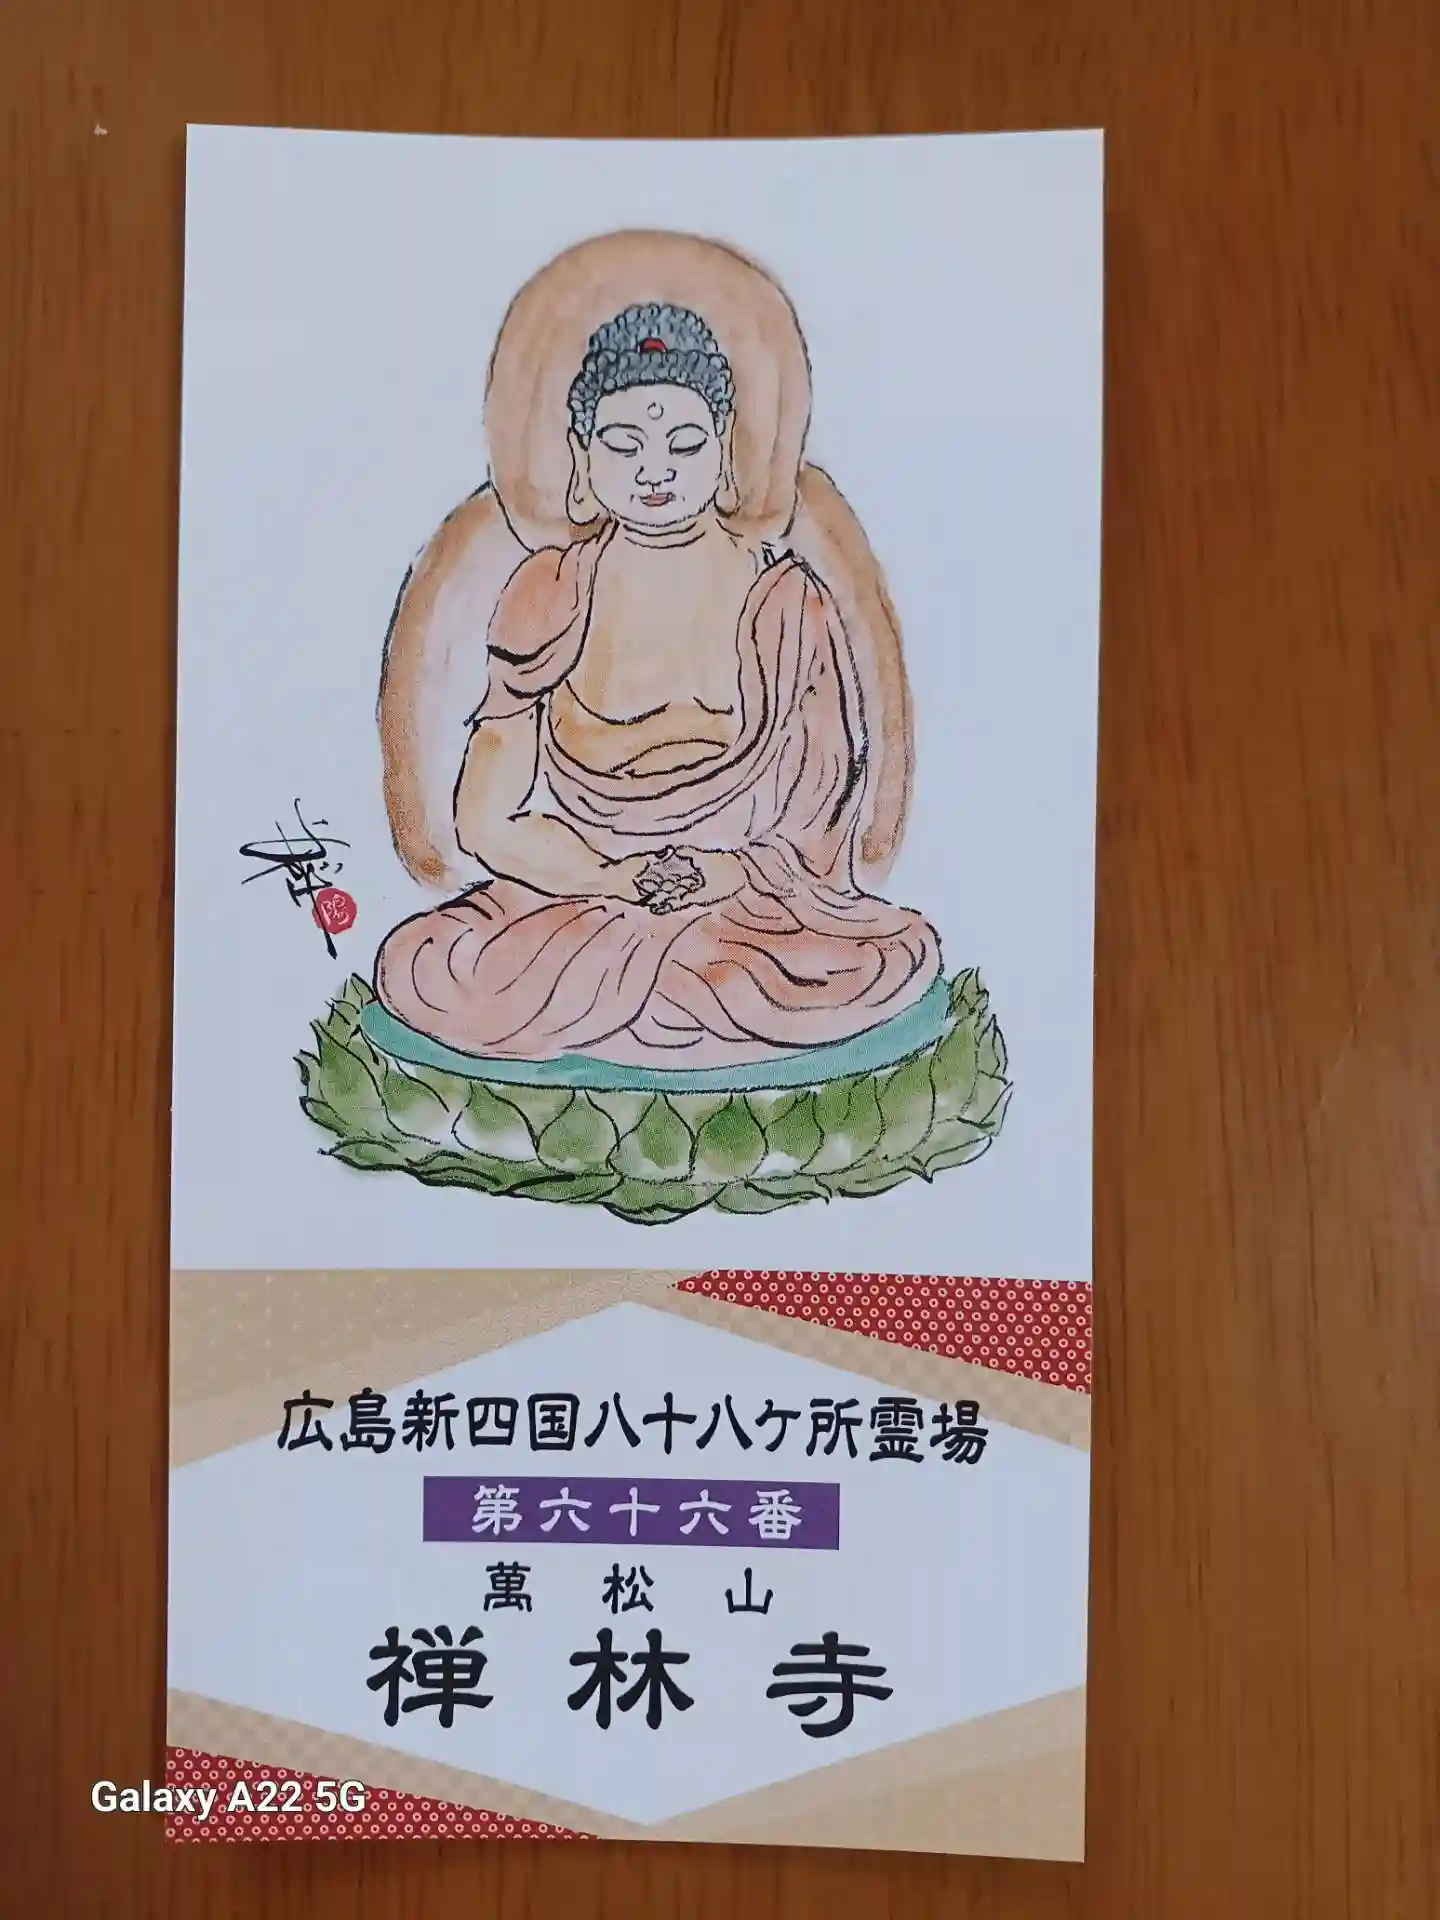 広島新四国八十八ケ所霊場
第六十六番
萬松山
禅林寺
Galaxy A22 5G